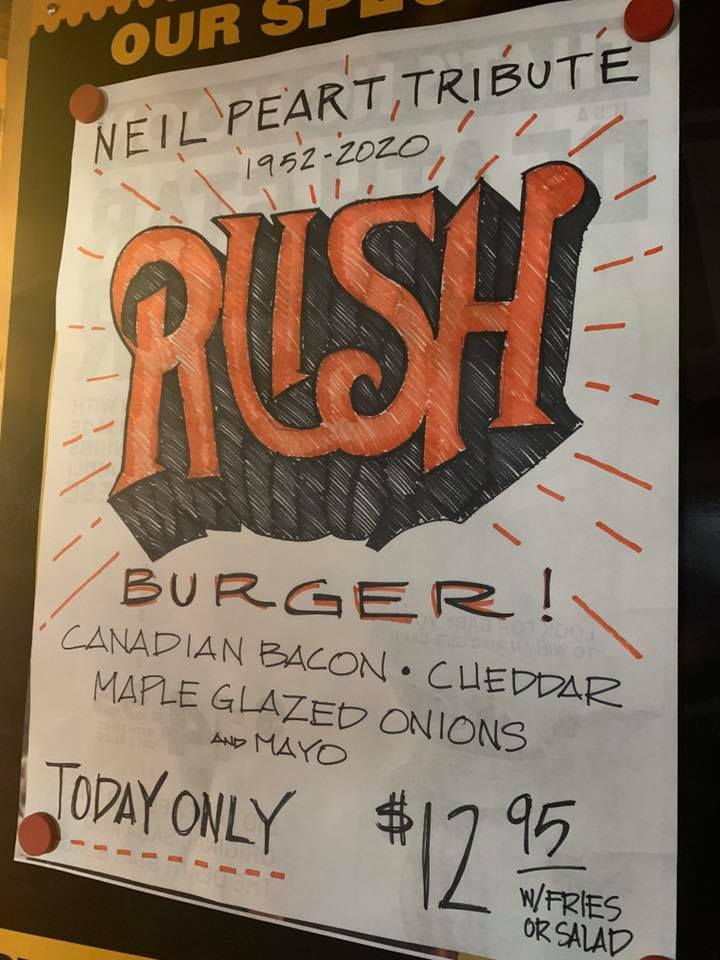 OUR SPE
NEIL PEART TRIBUTE
1952-2020
RUSH
BURGER!
CANADIAN BACON • CHEDDAR
MAPLE GLAZED ONIONS
AND MAYO
TODAY ONLY
$12 95
W/FRIES
OR SALAD